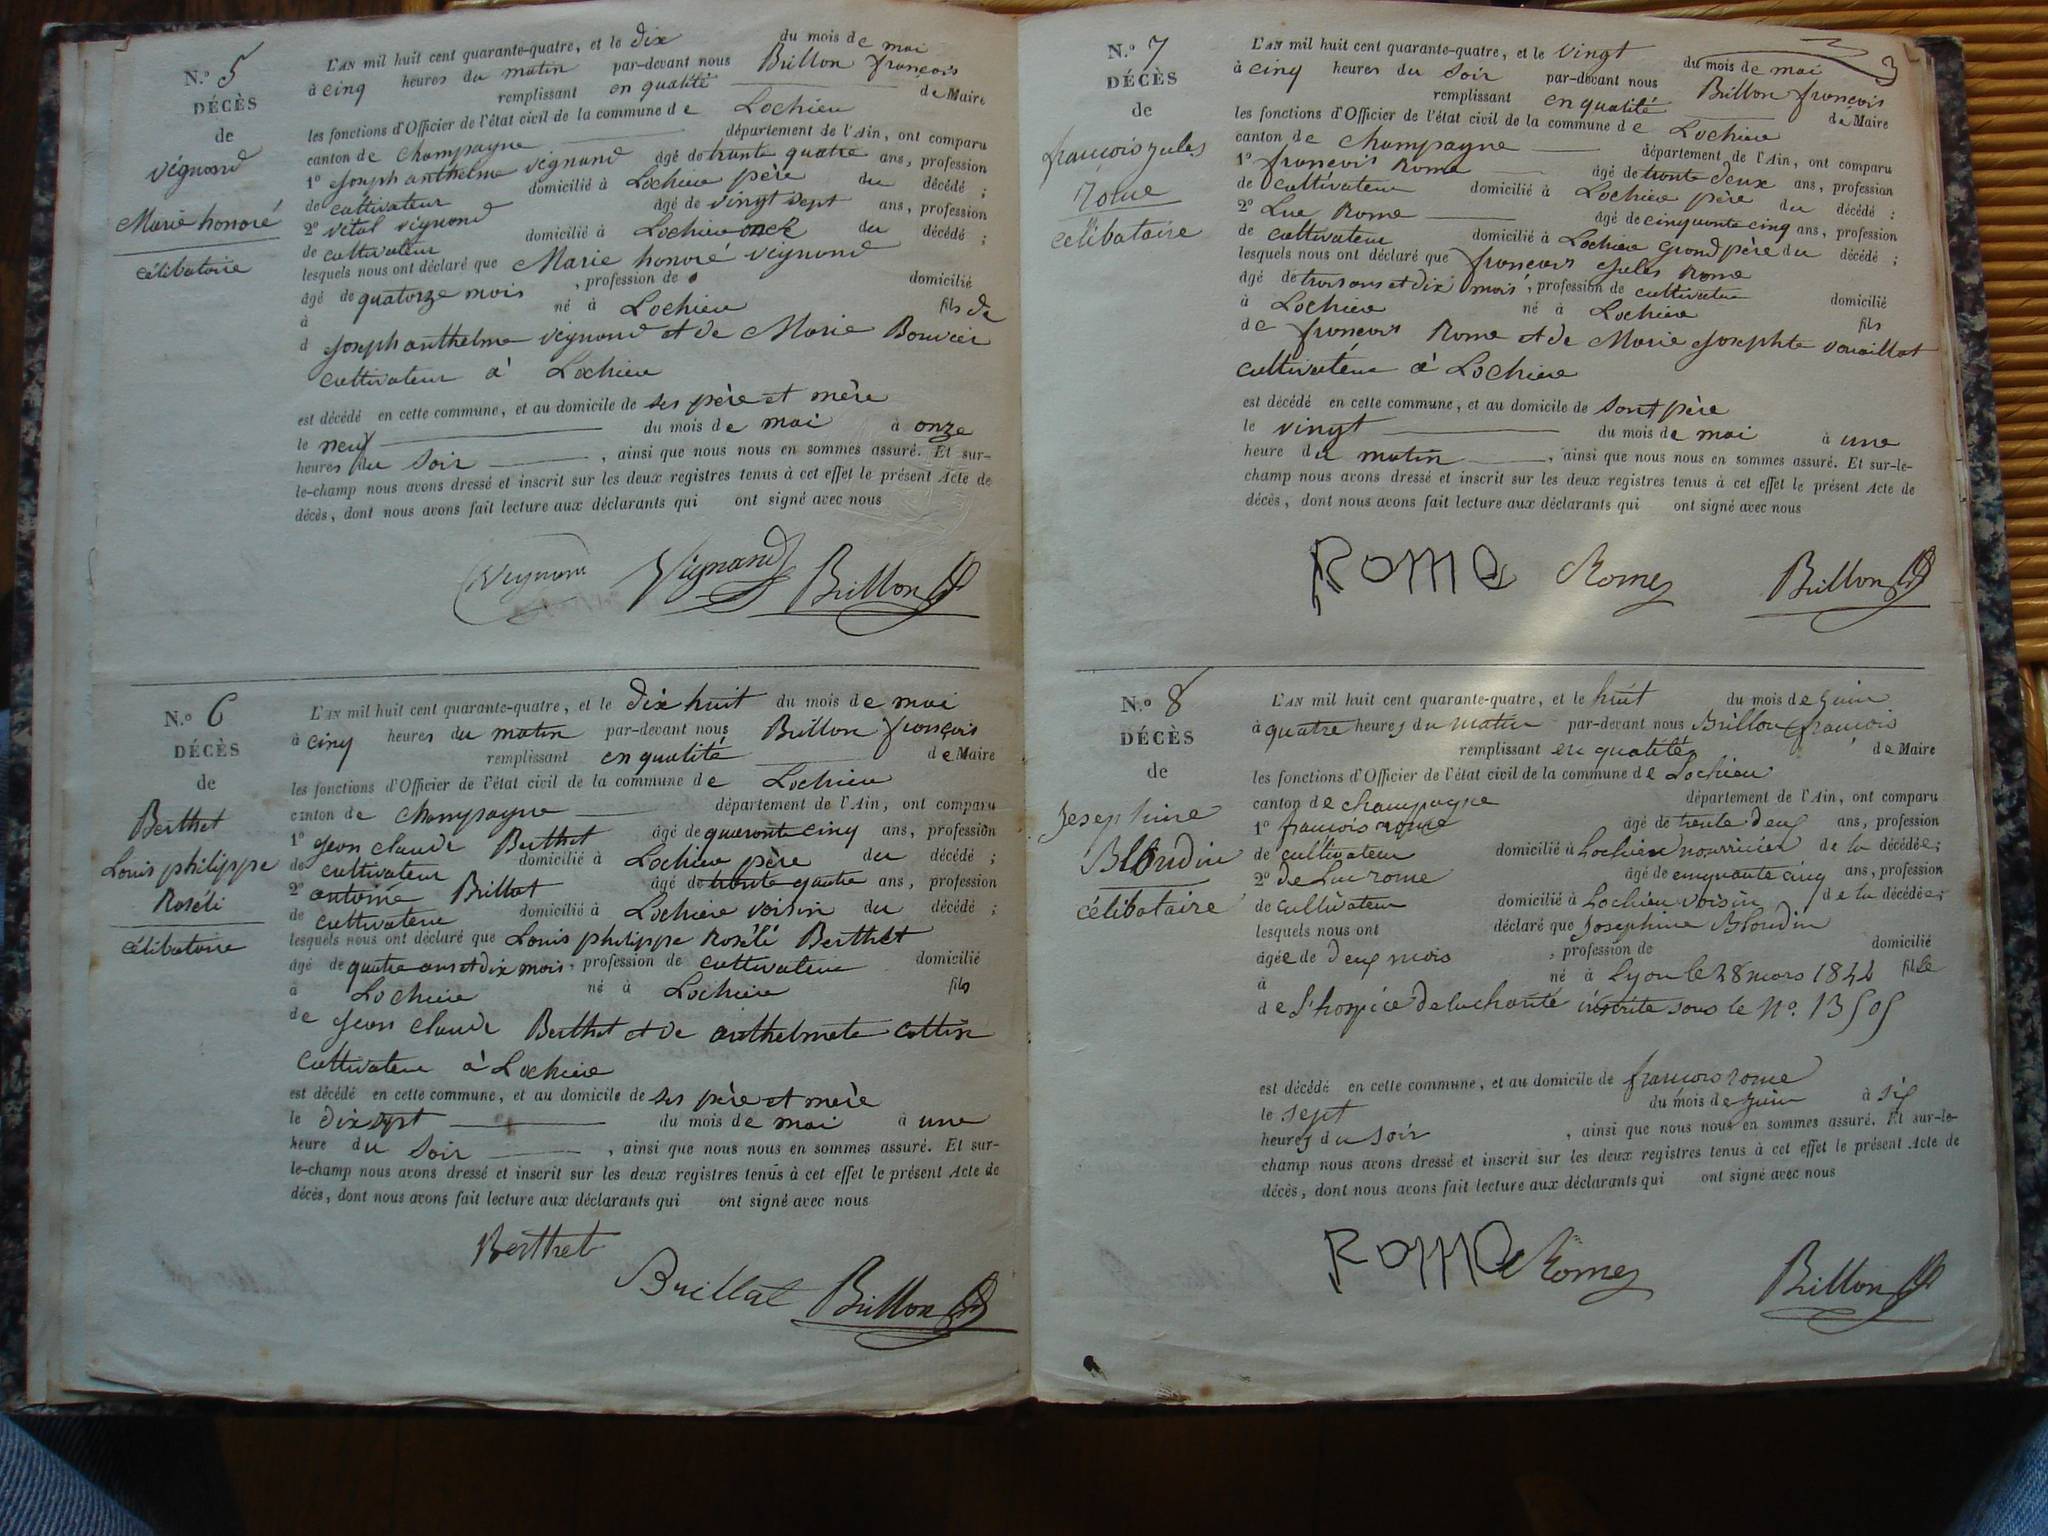 N.º 5
DÉCÈS
de
vignand
Marie honoré
célibatoire
L'AN mil huit cent quarante-quatre, et le dix du mois de mai
à cinq heures du matin par-devant nous Brillon françois
remplissant en qualité de Maire
les fonctions d'Officier de l'état civil de la commune de Lochieu
canton de Champagne département de l'Ain, ont comparu
1º Joseph anthelme vignand âgé de trante quatre ans, profession
de cultivateur domicilié à Lochieu père du décédé ;
2º vital vignand âgé de vingt sept ans, profession
de cultivateur domicilié à Lochieu oncle du décédé ;
lesquels nous ont déclaré que Marie honoré vignand
âgé de quatorze mois , profession de domicilié
à né à Lochieu fils de
d Joseph anthelme vignand et de Marie Bouvier
cultivateur à Lochieu
est décédé en cette commune, et au domicile de ses père et mère
le neuf du mois de mai à onze
heures du soir , ainsi que nous nous en sommes assuré. Et sur-
le-champ nous avons dressé et inscrit sur les deux registres tenus à cet effet le présent Acte de
décès, dont nous avons fait lecture aux déclarants qui ont signé avec nous
Vignand Vignand Brillon
N.º 6
DÉCÈS
de
Berthet
Louis philippe
Roséli
célibatoire
L'AN mil huit cent quarante-quatre, et le dix huit du mois de mai
à cinq heures du matin par-devant nous Brillon françois
remplissant en qualité de Maire
les fonctions d'Officier de l'état civil de la commune de Lochieu
canton de Champagne département de l'Ain, ont comparu
1º Jean claude Berthet âgé de quaronte cinq ans, profession
de cultivateur domicilié à Lochieu père du décédé ;
2º antoine Brillat âgé de trante quatre ans, profession
de cultivateur domicilié à Lochieu voisin du décédé ;
lesquels nous ont déclaré que Louis philippe Roséli Berthet
âgé de quatre ans et dix mois, profession de cultivateur domicilié
à Lochieu né à Lochieu fils
de Jean claude Berthet et de anthelmete cottin
cultivateur à Lochieu
est décédé en cette commune, et au domicile de ses père et mère
le dix sept du mois de mai à une
heure du soir , ainsi que nous nous en sommes assuré. Et sur-
le-champ nous avons dressé et inscrit sur les deux registres tenus à cet effet le présent Acte de
décès, dont nous avons fait lecture aux déclarants qui ont signé avec nous
Berthet
Buillat Brillon
3
N.º 7
DÉCÈS
de
francois jules
rome
célibataire
L'AN mil huit cent quarante-quatre, et le vingt du mois de mai
à cinq heures du soir par-devant nous Brillon françois
remplissant en qualité de Maire
les fonctions d'Officier de l'état civil de la commune de Lochieu
canton de Champagne département de l'Ain, ont comparu
1º françois Rome âgé de tronte deux ans, profession
de cultivateur domicilié à Lochieu père du décédé ;
2º Luc Rome âgé de cinquante cinq ans, profession
de cultivateur domicilié à Lochieu grond père du décédé ;
lesquels nous ont déclaré que françois Jules Rome
âgé de trois ans et dix mois, profession de cultivateur domicilié
à Lochieu né à Lochieu fils
de françois Rome et de Marie Josephte
cultivateur à Lochieu
est décédé en cette commune, et au domicile de sont père
le vingt du mois de mai à une
heure du matin , ainsi que nous nous en sommes assuré. Et sur-le-
champ nous avons dressé et inscrit sur les deux registres tenus à cet effet le présent Acte de
décès, dont nous avons fait lecture aux déclarants qui ont signé avec nous
ROME Rome Brillon
N.º 8
DÉCÈS
de
Josephine
Blondin
célibataire
L'AN mil huit cent quarante-quatre, et le huit du mois de Juin
à quatre heures du matin par-devant nous Brillon françois
remplissant en qualité de Maire
les fonctions d'Officier de l'état civil de la commune de Lochieu
canton de champagne département de l'Ain, ont comparu
1º francois rome âgé de trente deux ans, profession
de cultivateur domicilié à Lochieu nourricier de la décédée;
2º de Luc rome âgé de cinquante cinq ans, profession
de cultivateur domicilié à Lochieu voisin de la décédée;
lesquels nous ont déclaré que Josephine Blondin
âgée de deux mois , profession de domicilié
à né à Lyon le 28 mars 1844 fille
de l'hospice de la charité inscrite sous le Nº 13505
est décédé en cette commune, et au domicile de francois rome
le sept du mois de Juin à six
heures du soir , ainsi que nous nous en sommes assuré. Et sur-le-
champ nous avons dressé et inscrit sur les deux registres tenus à cet effet le présent Acte de
décès, dont nous avons fait lecture aux déclarants qui ont signé avec nous
ROME Rome Brillon